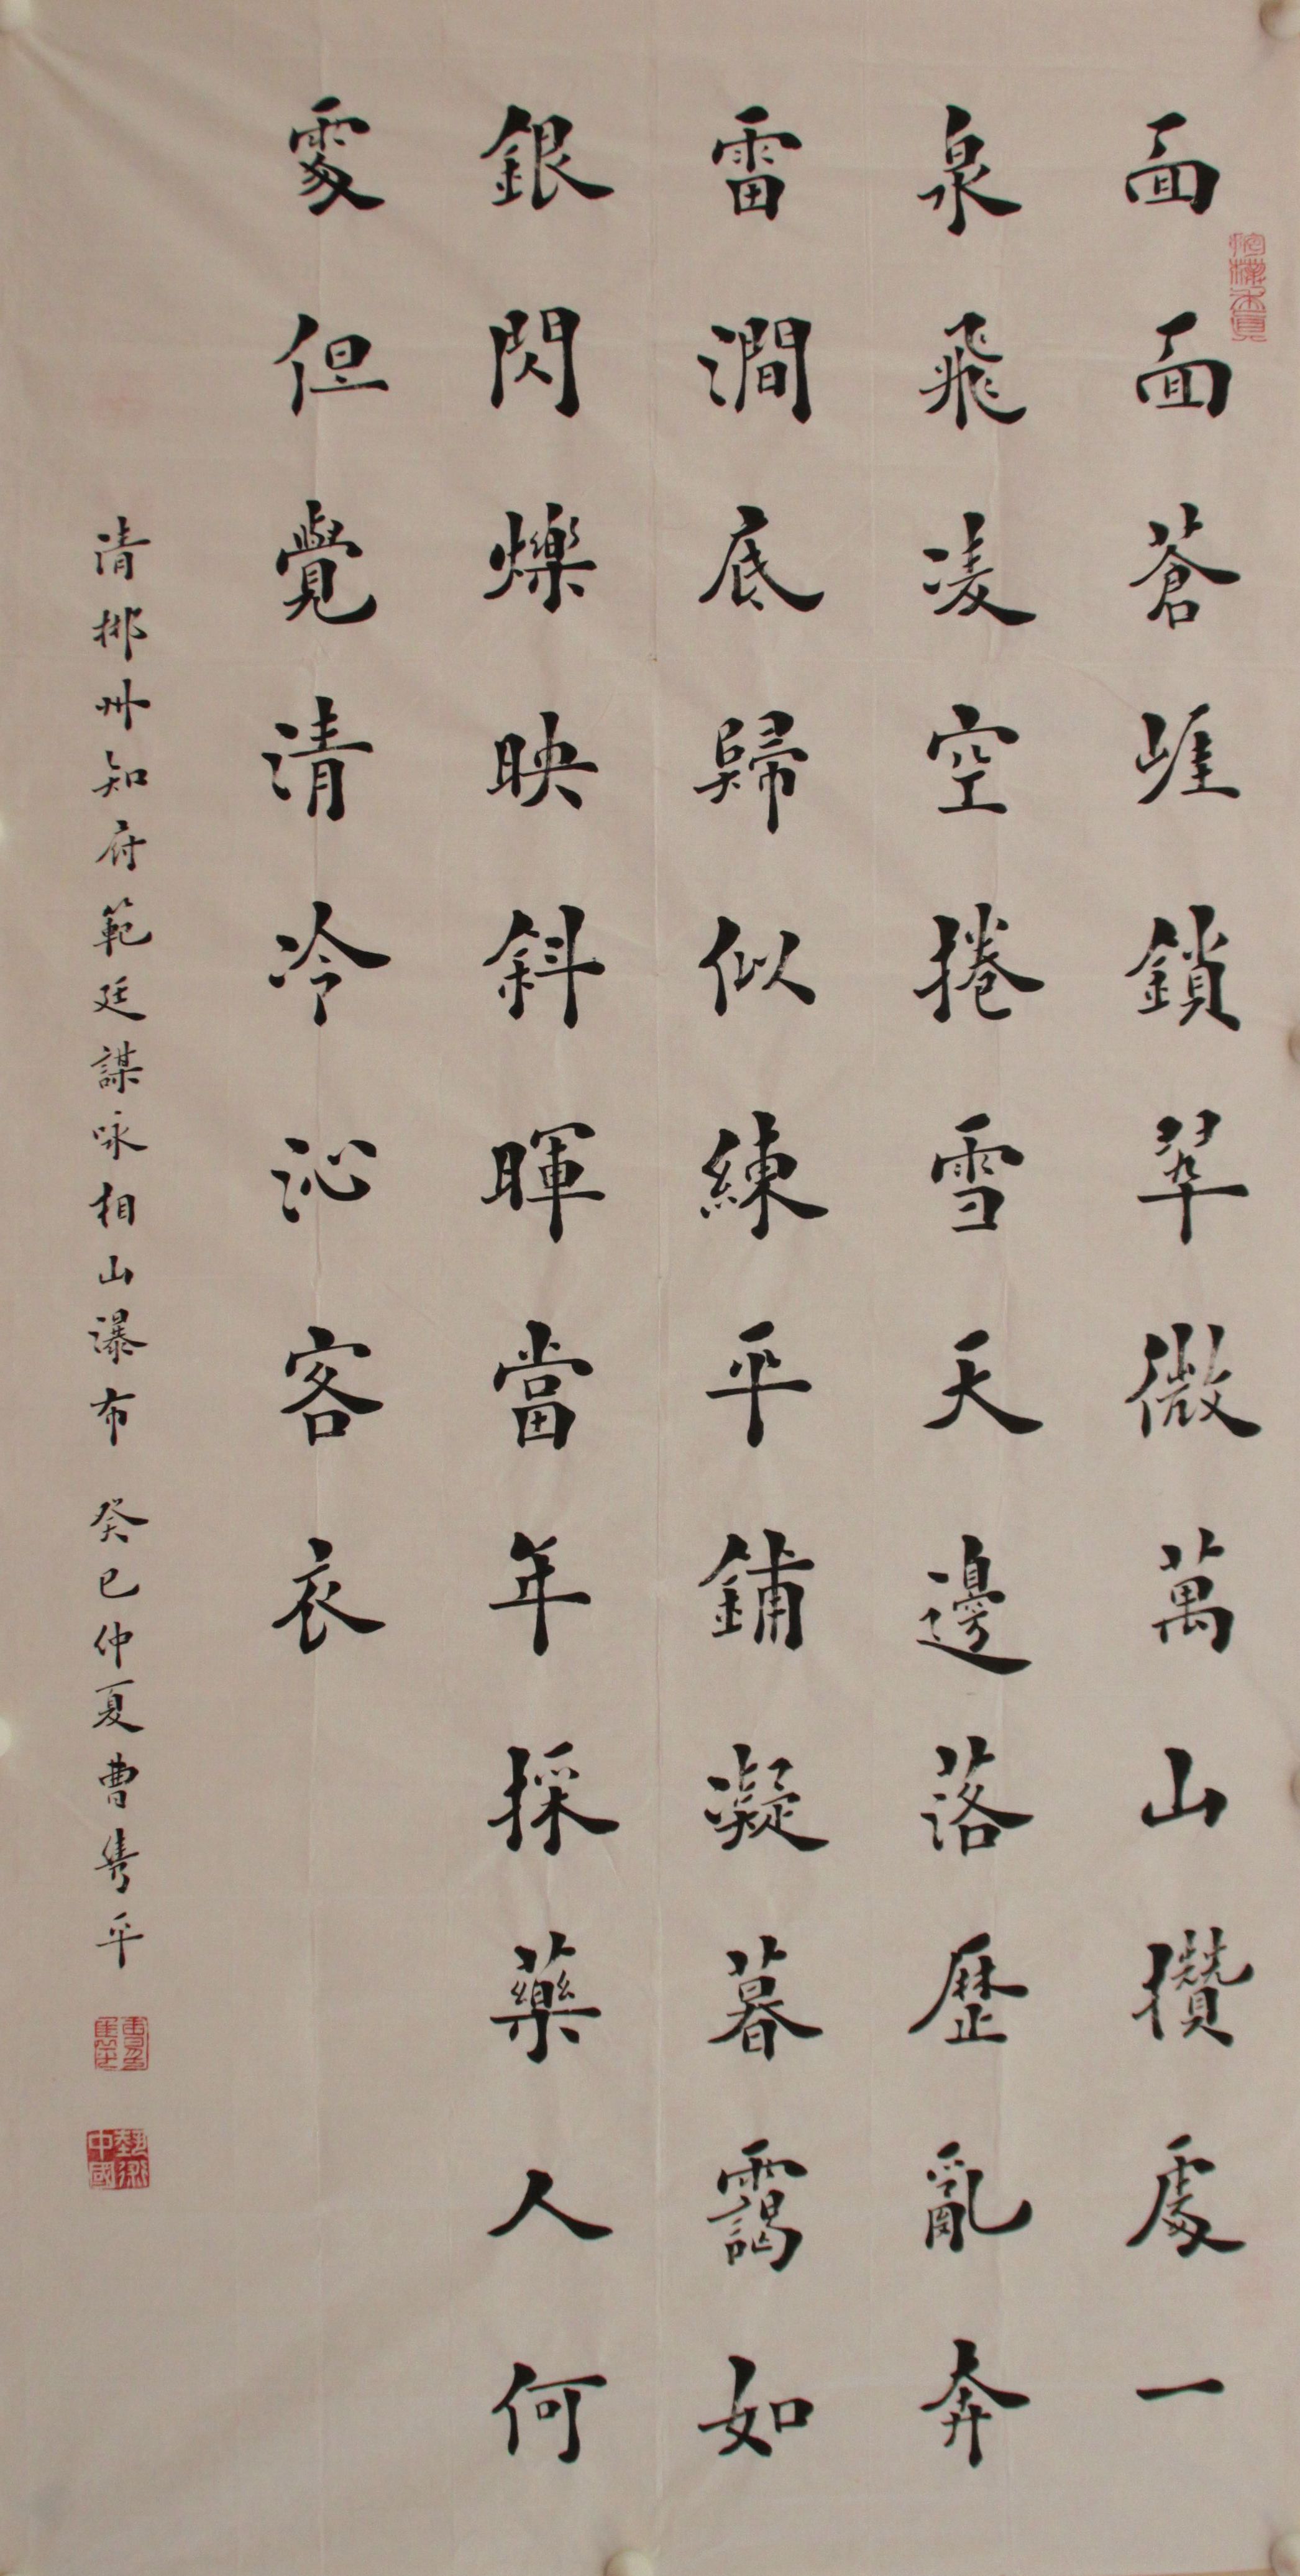 面面蒼崕鎖翠微萬山攢處一
泉飛凌空捲雪天邊落歷亂奔
雷澗底歸似練平鋪凝暮靄如
銀閃爍映斜暉當年採藥人何
處但覺清冷沁客衣
清郴州知府範廷謀咏相山瀑布 癸巳仲夏曹雋平
藝術中國